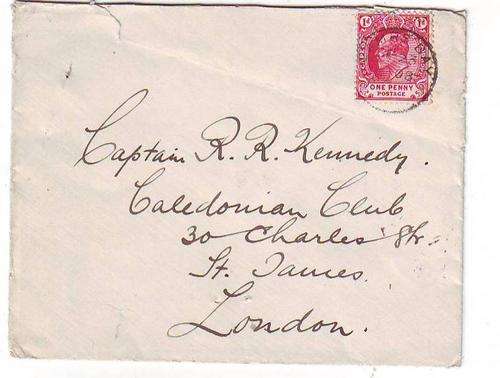 1d 1d
ONE PENNY
POSTAGE
Captain R. R. Kennedy.
Caledonian Club
30 Charles Str.
St. James.
London.